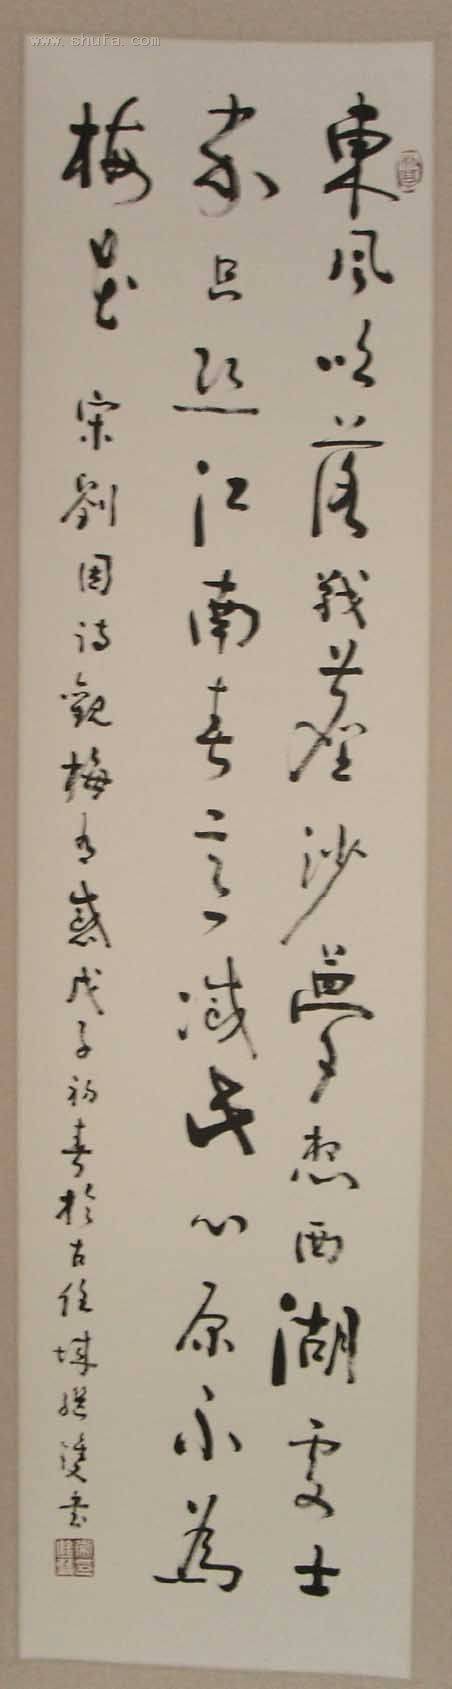 www.shufa.com
東風吹落戰塵沙夢想西湖處士
家只恐江南春意減此心原不為
梅花 宋劉因詩觀梅有感戊子初春於古任城繼書